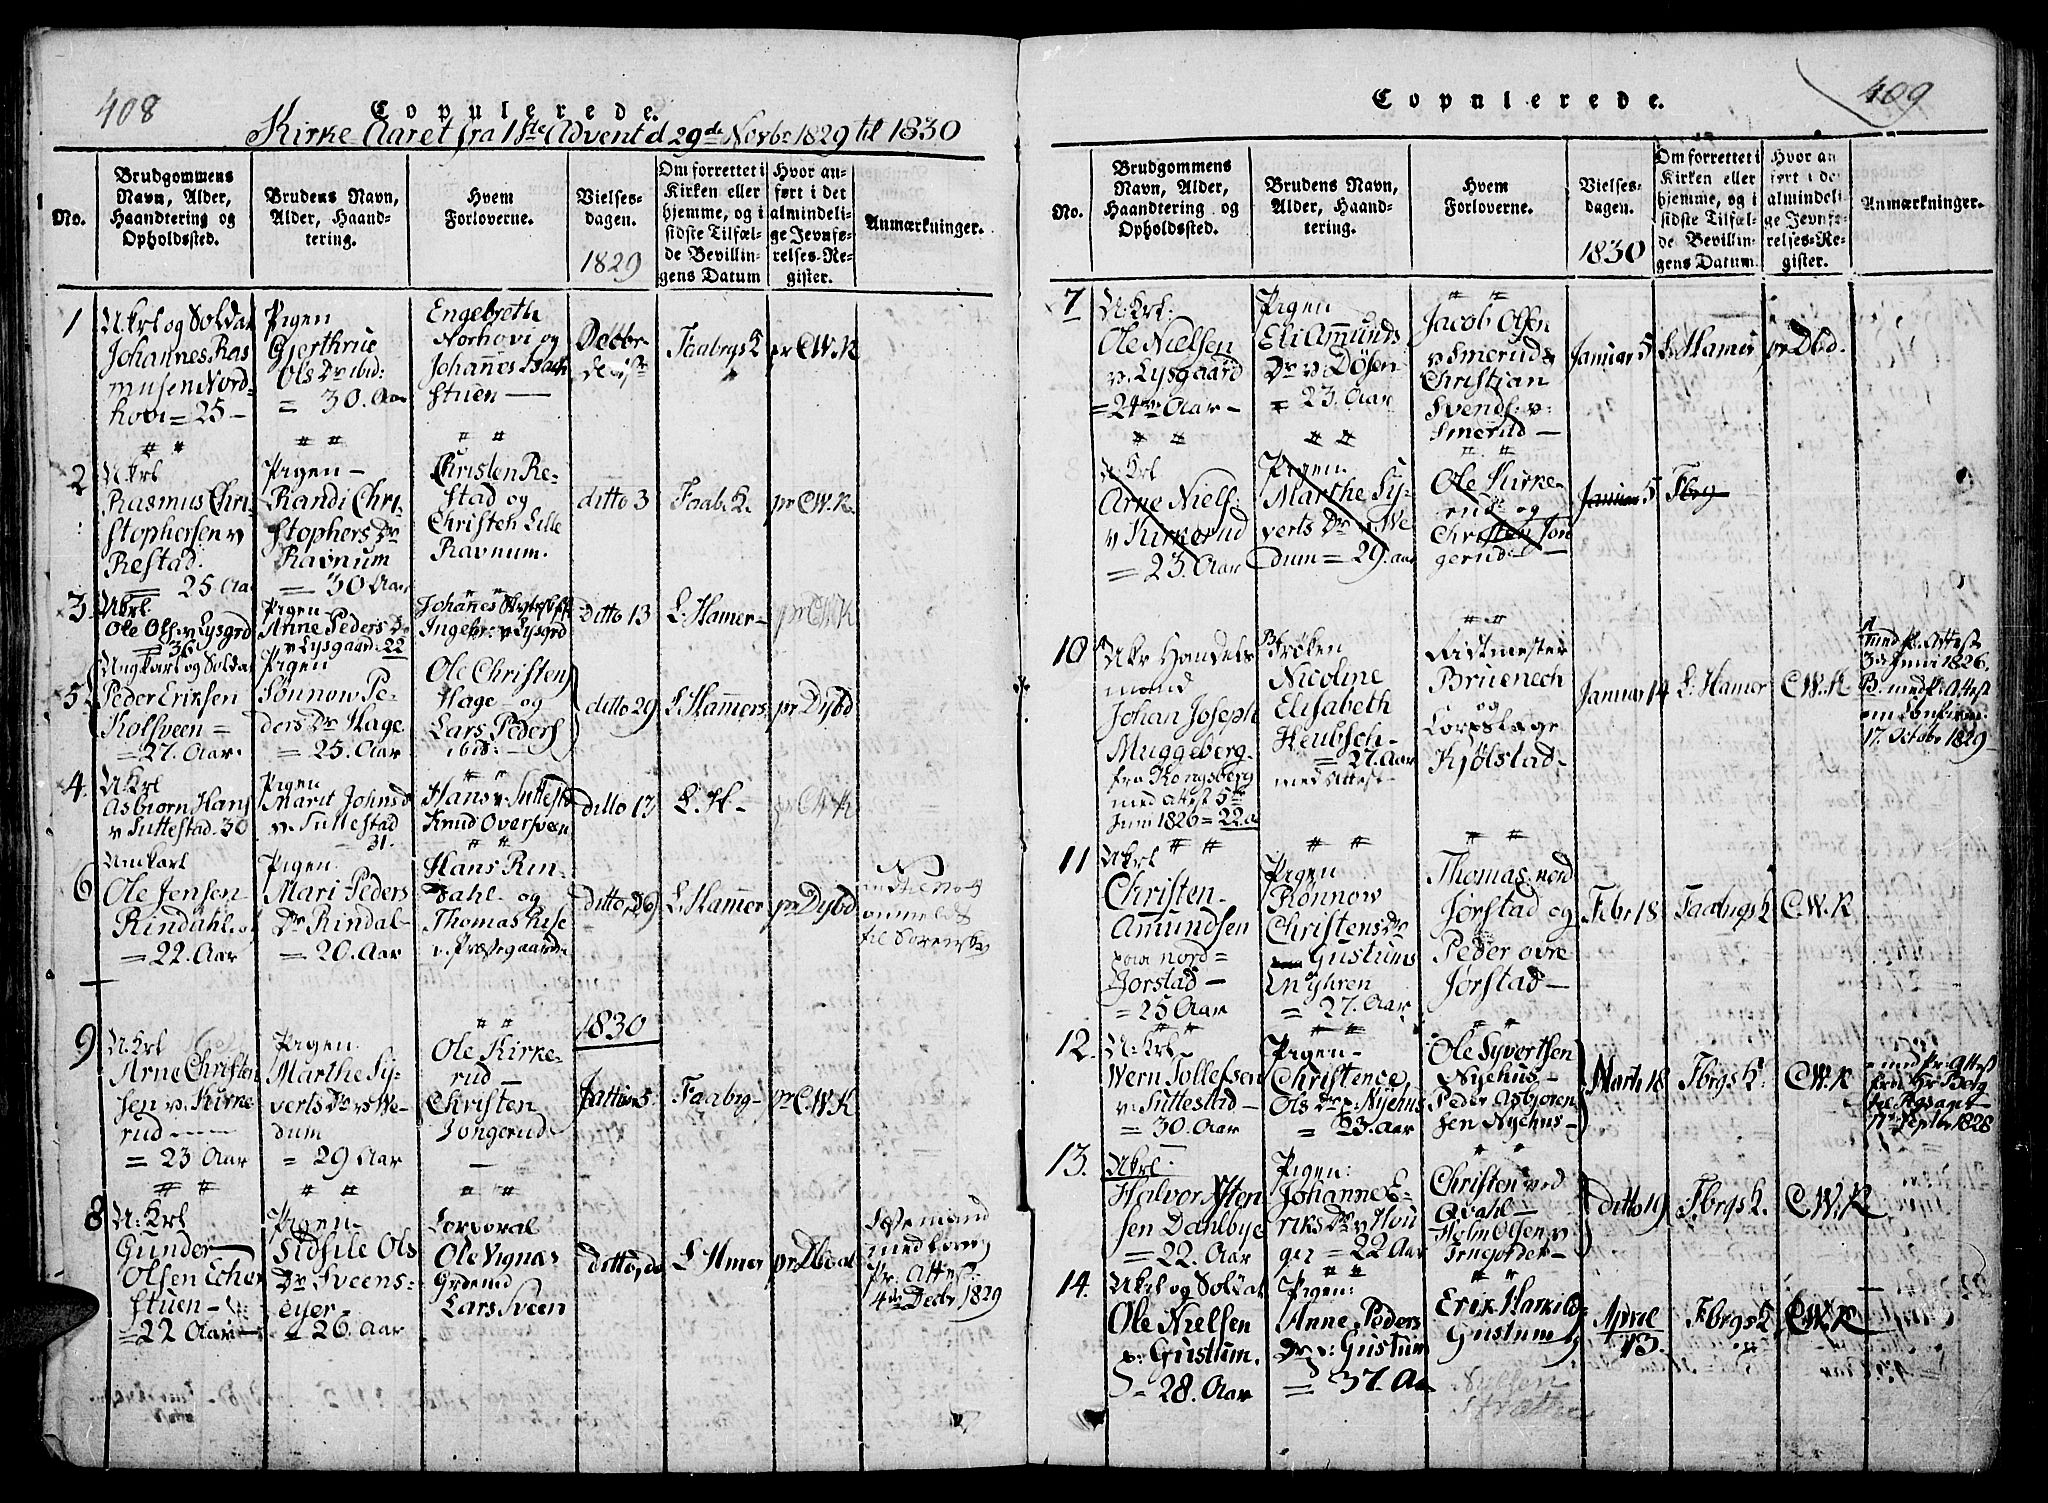 408
Copulerede.
Kirke-Aaret fra 1ste Advent d 29de Novbr 1829 til 1830
No.
Brudgommens
Navn, Alder,
Haandtering og
Opholdssted.
Brudens Navn,
Alder, Haand-
tering.
Hvem
Forloverne.
Vielses-
dagen.
1829
Om forrettet i
Kirken eller
hjemme, og i
sidste Tilfæl-
de Bevillin-
gens Datum
Hvor an-
ført i det
almindeli-
ge Jevnfø-
relses-Re-
gister.
Anmærkninger.
1
Ukrl og Soldat
Johannes Ras
musen Nord-
hovi = 25 -
Pigen
Gjerthrue
Ols Dr ibid:
= 30. Aar
Engebreth
Norhovi og
Johannes
stuen -
Decbr
Faabrgs K
pr C.W.K
2
Ukrl
Rasmus Chri-
stophersen v
Restad.
= 25 Aar
Pigen -
Randi Chri-
stophers Dr
Ravnum
= 30 Aar
Christen Re-
stad og
Christen Lille
Ravnum.
ditto 3
Faab. K.
pr C.W.K.
3.
Ukrl
Ole Ols. v Lysgrd
= 36
Pigen
Anne Peders Dr
v Lysgaard. 22
Johannes
Ingebr: v Lysgrd
Ditto 13
L: Hamer -
pr C.W.K
5.
Ungkarl og Soldat
Peder Eriksen
Kolsveen =
= 27. Aar.
Pigen
Sønnow Pe-
ders Dr Hage
= 25. Aar
Ole Christen
Hage - og
Lars Peders
ibid: -
ditto 29
L Hammers
pr Dybd
4.
Ukrl
Asbjorn Hans
v Suttestad. 30
Pigen
Marit Johns d
v. Suttestad
31.
Hans v. Suttestd
Knud Oversveen
ditto 17
L. H -
pr C.W.K
6
Umkarl
Ole Jensen
Rindahl.
= 22. Aar
Pigen
Mari Peders
Dr Rindal -
= 20. Aar
Hans Rin-
dahl - og
Thomas Rise
v. Præstegaarden
ditto, 29
L. Hammer
pr Dybd
9
U.Krl
Arne Christen
sen v. Kirke
rud -
= 23 Aar
Pigen.
Marthe Sy-
verts Dr v We-
dum
= 29 Aar
Ole Kirke-
rud -
Christen
Jongerud -
1830
5.
Faabrg -
pr C.W.K
8
U:Krl
Gunder -
Olsen Ecker
stuen -
= 22 Aar -
Pigen -
Sidsile Ols
Dr Sveens-
eyer -
= 26. Aar
Corporal
Ole Vignas
Grømd
Lars Sveen
Ditto, do
L Hmer
pr Dbdal
Pr: Attest
4de Decbr 1829
Copulerede.
409
No.
Brudgommens
Navn, Alder,
Haandtering og
Opholdssted.
Brudens Navn,
Alder, Haand-
tering.
Hvem
Forloverne.
Vielses-
dagen.
1830
Om forrettet i
Kirken eller
hjemme, og i
sidste Tilfæl-
de Bevillin-
gens Datum.
Hvor an
ført i de
almindeli
ge Jevnfø-
relses-Re-
gister.
Anmærkninger.
7
U.Krl:
Ole Nielsen
v. Lysgaard
= 24 Aar -
Pigen
Eli Amunds
Dr v Døsen
= 23. Aar
Jacob Olsen
v Smeruds
Christian
Svends: v:
Smerud -
Januar 5
L: Hamer
pr Dbd.
U:Krl
Arne Niels:
v Kirkerud
= 23. Aar
Pigen
Marthe Sy-
verts Dr v We
dum = 29. Aar
Ole Kirke-
rud - og
Christen Jon
gerud -
Januar 5
Fbrg
10
Ukr Handels
mand
Johan Joseph
Muggeberg -
fra Kongsberg
med Attest 5te
Juni 1826 = 22 a
Frøken
Nicoline
Elisabeth
Heubsch -
= 27. Aar
med Attest -
Ritmester
Bruenech
og
Corpslæge
Kjølstad -
Januar 14
L: Hamer
C.W.K
med pr. Attest
3 Juni 1826.
B. med pr. Attest
om Confirm:
17. Octobr 1829 -
11
Ukrl
Christen -
Amundsen
paa nord =
Jorstad -
= 25 Aar
Pigen
Rønnow
Christens Dr
Gustums
= 27. Aar
Thomas nord
Jørstad og
Peder ovre
Jørstad -
Febr 18
Faabrgs K
C.W.K
12.
U:Krl
Wern Tollefsen
v: Suttestad -
= 30. Aar
Pigen -
Christence
Ols Dr v. Nyehus
= 23. Aar
Ole Syvertsen
Nyehus -
Peder Asbjoren
sen Nyehus -
Marti 18
Fbrgs K.
C.W.K
med pr: Attest
fra Hr Berg
17 Septbr 1828
13.
Ukrl -
Halvor Isten
sen Dahlbye
= 22. Aar
Pigen:
Johanne E-
riks Dr v Hou
ger = 22 Aar
Christen ved
Qvahl -
Holm Olsen v
ditto 19
Fbrgs K.
C.W.K
14.
Ukrl og Soldat
Ole Nielsen
v: Gustum.
= 28. Aar
Pigen:
Anne Peders
Dr v: Gustum
= 37. Aar
Erik Harild
Gustum
April
13.
Fbrgs K
C.W.K